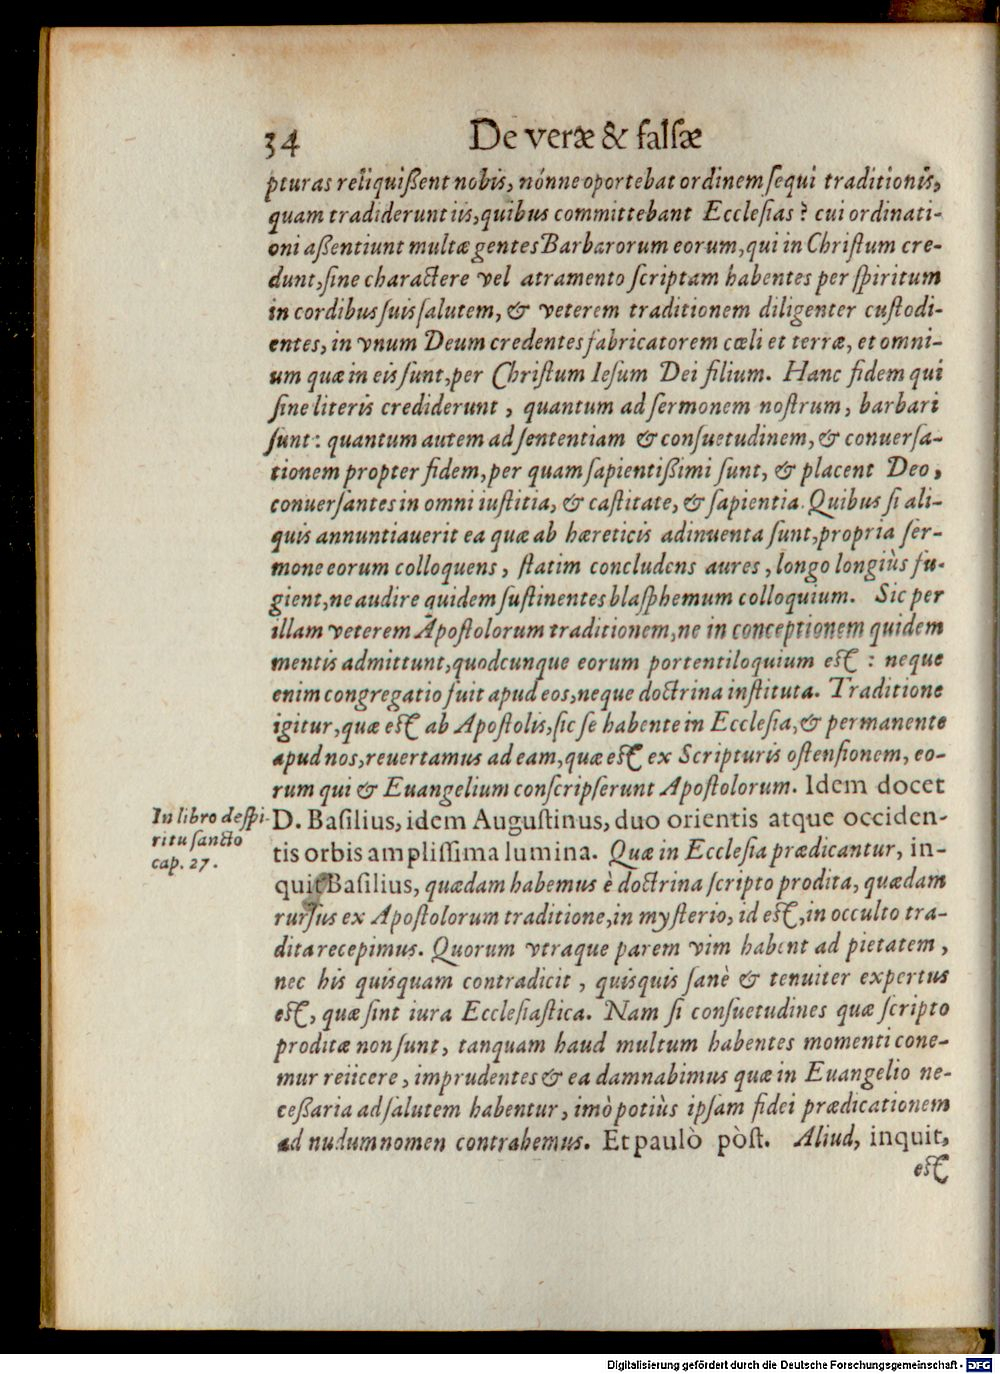 34 De veræ & falſæ
pturas reliquißent nobis, nónne oportebat ordinem ſequi traditionis,
quam tradiderunt iis, quibus committebant Ecclesias? cui ordinati-
oni aßentiunt multæ gentes Barbarorum eorum, qui in Chriſtum cre-
dunt, ſine charactere vel atramento ſcriptam habentes per ſpiritum
in cordibus ſuis ſalutem, & veterem traditionem diligenter cuſtodi-
entes, in vnum Deum credentes fabricatorem cœli et terræ, et omni-
um quæ in eis ſunt, per Chriſtum Ieſum Dei filium. Hanc fidem qui
ſine literis crediderunt, quantum ad ſermonem noſtrum, barbari
ſunt: quantum autem ad ſententiam & conſuetudinem, & conuerſa-
tionem propter fidem, per quam ſapientißimi ſunt, & placent Deo,
conuerſantes in omni iuſtitia, & caſtitate, & ſapientia. Quibus ſi ali-
quis annuntiauerit ea quæ ab hæreticis adinuenta ſunt, propria ſer-
mone eorum colloquens, ſtatim concludens aures, longo longiùs fu-
gient, ne audire quidem ſuſtinentes blaſphemum colloquium. Sic per
illam veterem Apoſtolorum traditionem, ne in conceptionem quidem
mentis admittunt, quodcunque eorum portentiloquium eſt: neque
enim congregatio fuit apud eos, neque doctrina inſtituta. Traditione
igitur, quæ eſt ab Apoſtolis, ſic ſe habente in Eccleſia, & permanente
apud nos, reuertamus ad eam, quæ eſt ex Scripturis oſtenſionem, eo-
rum qui & Euangelium conſcripſerunt Apoſtolorum. Idem docet
In libro de ſpi-
ritu ſancto
cap. 27.
D. Baſilius, idem Auguſtinus, duo orientis atque occiden-
tis orbis ampliſſima lumina. Quæ in Eccleſia prædicantur, in-
quit Baſilius, quædam habemus è doctrina ſcripto prodita, quædam
rurſus ex Apoſtolorum traditione, in myſterio, id eſt, in occulto tra-
dita recepimus. Quorum vtraque parem vim habent ad pietatem,
nec his quisquam contradicit, quisquis ſanè & tenuiter expertus
eſt, quæ ſint iura Eccleſiaſtica. Nam ſi conſuetudines quæ ſcripto
proditæ non ſunt, tanquam haud multum habentes momenti cone-
mur reiicere, imprudentes & ea damnabimus quæ in Euangelio ne-
ceßaria ad ſalutem habentur, imò potiùs ipſam fidei prædicationem
ad nudum nomen contrahemus. Et paulò pòſt. Aliud, inquit,
eſt
Digitalisierung gefördert durch die Deutsche Forschungsgemeinschaft - DFG